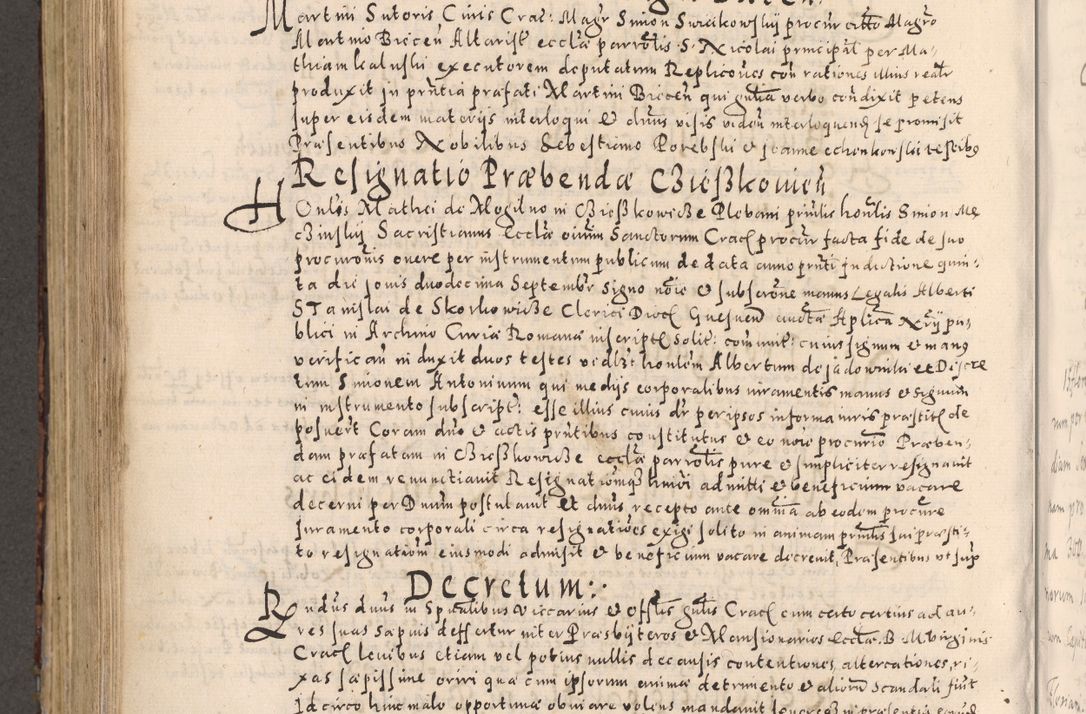 Martini Sutoris Civis Crac: Magr Simon Swiatkowskij procur citto Magro
Martino Biecen Altarist eccla parrolis S. Nicolai principal per Ma-
thiam kaluski executorem deputatum Replicoues con rationes illius realr
produxit in pñtia præfati Martini Biecen qui gulia verbo condixit petens
super eisdem materijs interloqui et dnus visis videri interloquend se promisit
Præsentibus Nobilibus Sebestiano Porebski et Joanne echonkowski testibus
Resignatio Præbendæ CZieSkovien
Honlis Mathei de Mogilno in CzieSkowicze Plebani prinlis honlis Simon Me
czinskij Sacristianus Eccla oium Sanctorum Crac procur facta fide de suo
procuronis onere per instrumentum publicum de data anno pnti Indictione quin-
ta die Jovis duodecima Septembr signo noie et subscrone manus Legalis Alberti
STanislai de Skorkowicze Clerici Dioc Gnesnen auctta Aplica Nrij pu-
blici in Archivo Curiæ Romanæ inscript solit: comunit: cuius signum et manus
verifican induxit duos testes vedlzt honlem Albertum de Jadowniki et Discre
tum Simonem Antoninum qui medijs corporalibus iuramentis manus et signum
in instrumento subscript: esse illius cuius dr per ipsos in forma iuris præstit de
posuert Coram duo et actis pntibus constitutus et eo noie procurio Præben-
dam præfatam in CzieSkowicze eccla parrolis pure et simpliciter resignavit
ac eidem renunctiavit Resignationemq admitti et beneficium vacare
decerni per Dnum postulavit Et dnus recepto ante omnia ab eodem procure
Juramento corporali circa resignationes exigi solito in animam prinlis sui præsti-
to resignationi eiusmodi admisit et beneficium vacare decrevit, Præsentibus ut sup
Decretum:
Rndus dnus in Spualibus Viccarius et Offlis gnlis Crac cum certo certius ad au-
res suas sæpius deffertur inter Præsbijteros et Mansionarios Eccla B. M. virginis
Crac levibus etiam vel potius nullis de causis contentiones, altercationes, ri-
xas sæpissime oriri qua cum ipsorum animæ detrimento et aliorum scandali fiut
Id circo huic malo opportune obviare volens mandavit